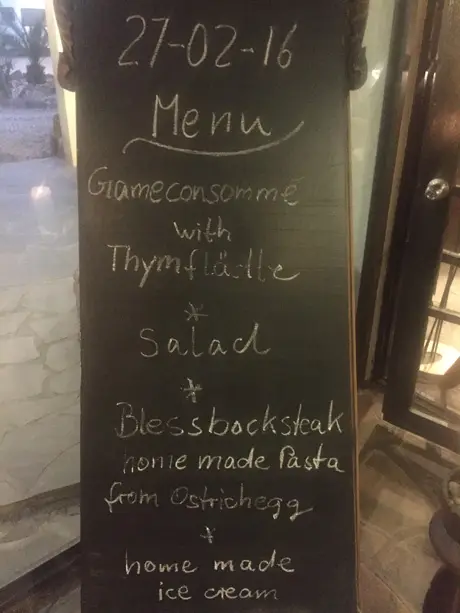 27-02-16
Menu
Gameconsommé
with
Thymflädle
*
Salad
*
Blessbocksteak
home made Pasta
from Ostrichegg
*
home made
ice cream